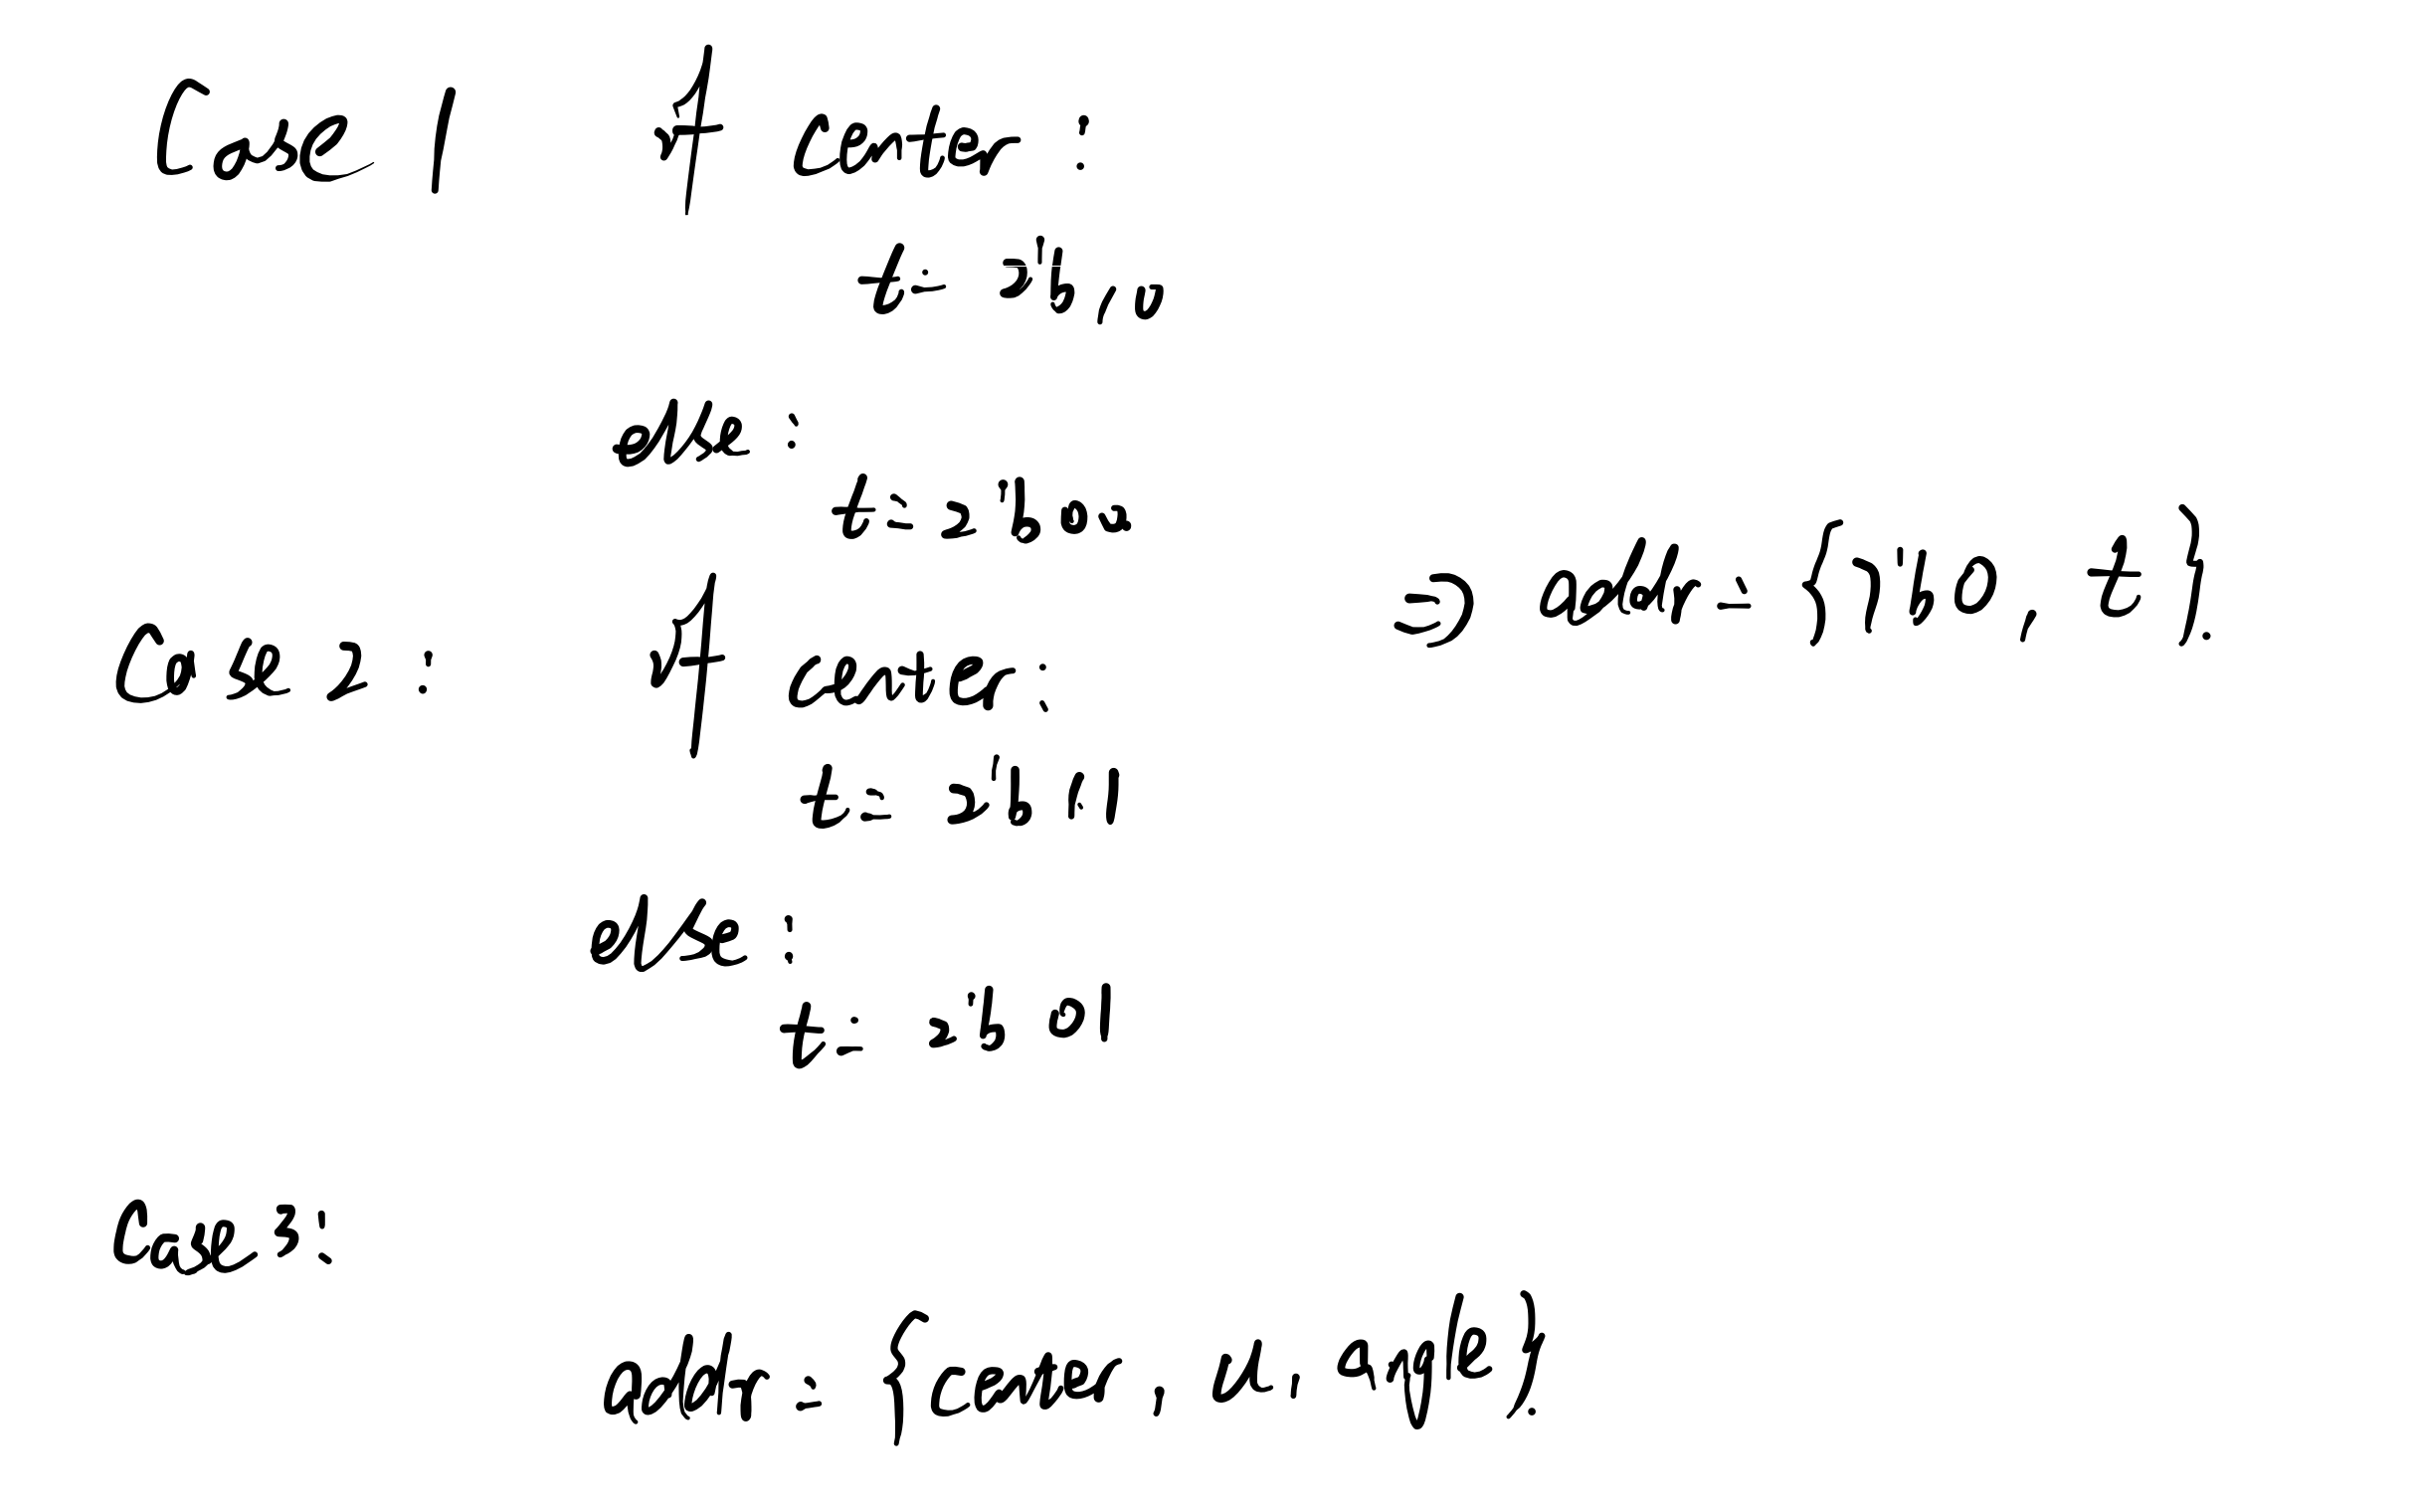 Case 1 if center :
t= 2'b10
else :
t= 2'b00
Case 2 : if center :
t= 2'b11
else :
t= 2'b 01
⇒ addr= {7'b0, t}.
Case 3:
addr= {center, u, angle}.